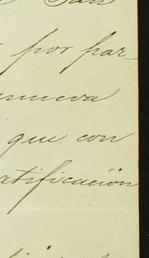 San
por par-
nueva
que con
atificación